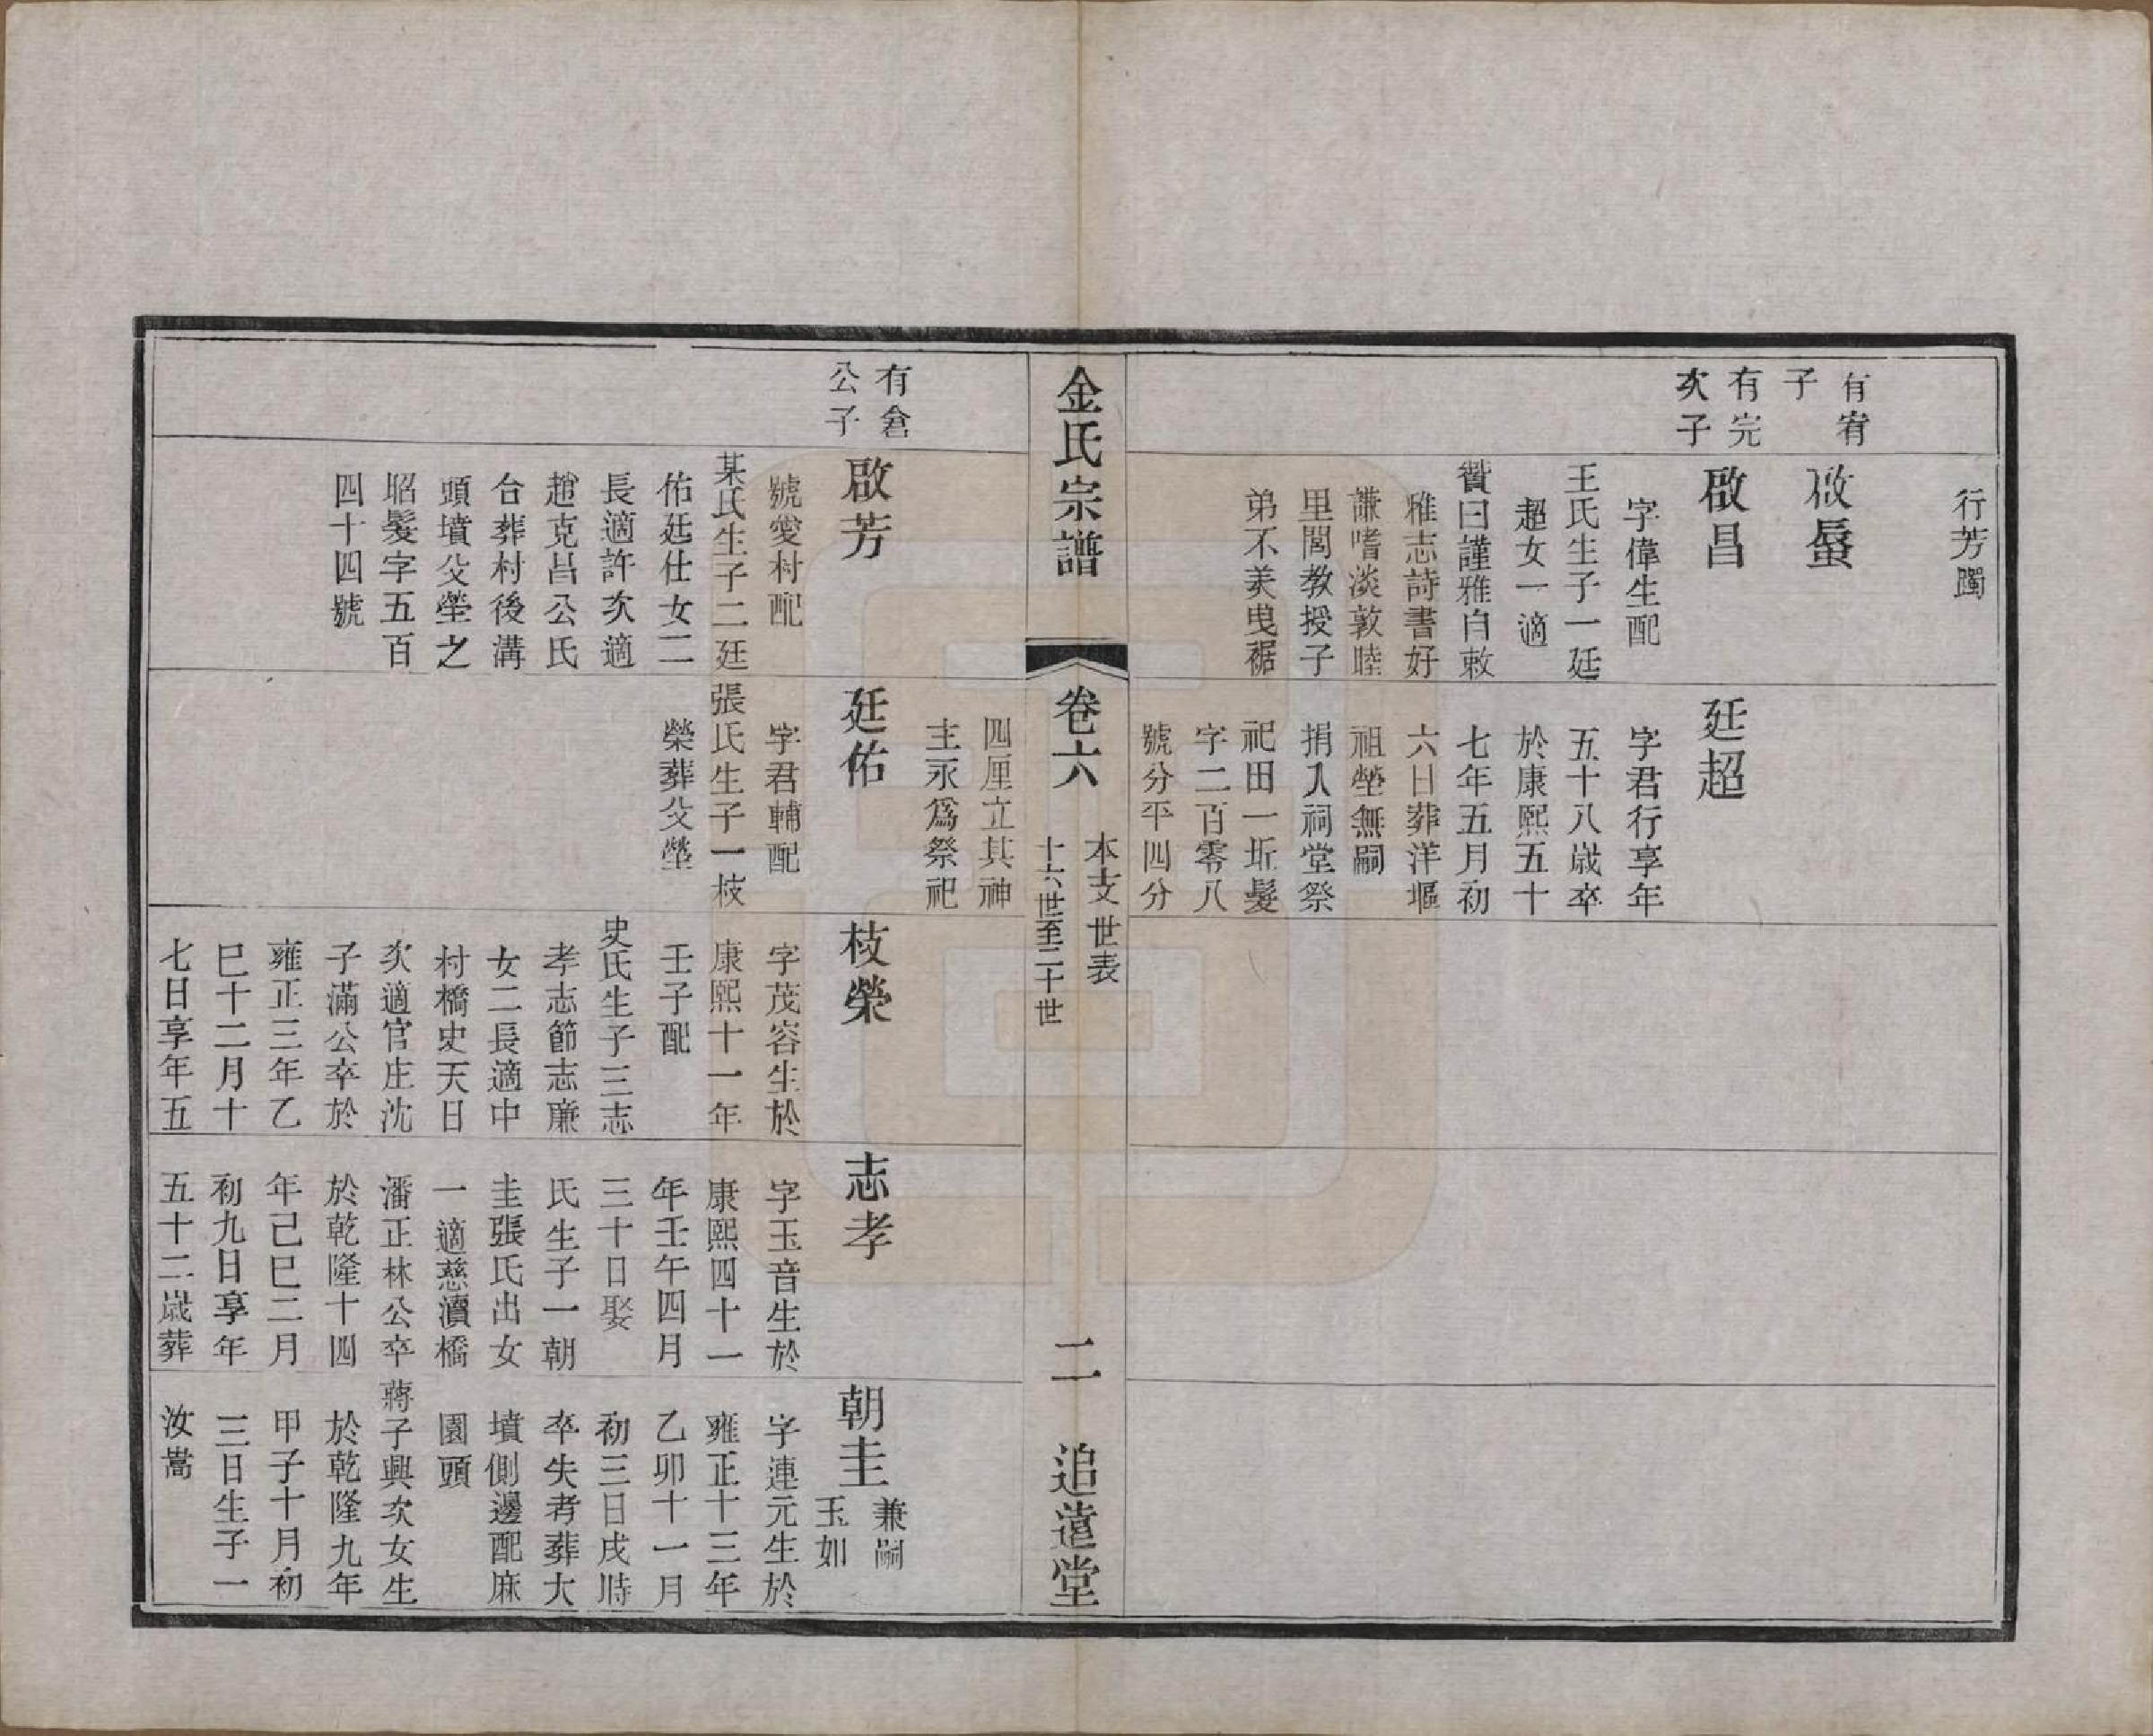 行芳躅
有宥
子
啟蜃
有完
次子
啟昌
字偉生配
王氏生子一廷
超女一適
贊曰謹雅自敕
雅志詩書好
謙嗜淡敦睦
里閭教授子
弟不美曳裾
廷超
字君行享年
五十八歲卒
於康熙五十
七年五月初
六日葬洋堰
祖塋無嗣
捐入祠堂祭
祀田一坵髮
字二百零八
號分平四分
金氏宗譜
卷六
本支世表
十六世至二十世
二
追遠堂
四厘立其神
主永爲祭祀
有倉
公子
啟芳
號愛村配
某氏生子二廷
佑廷仕女二
長適許次適
趙克昌公氏
合葬村後溝
頭墳父塋之
昭髮字五百
四十四號
廷佑
字君輔配
張氏生子一枝
榮葬父塋
枝榮
字茂容生於
康熙十一年
壬子配
史氏生子三志
孝志節志廉
女二長適中
村橋史天日
次適官庄沈
子滿公卒於
雍正三年乙
巳十二月十
七日享年五
志孝
字玉音生於
康熙四十一
年壬午四月
三十日娶
氏生子一朝
圭張氏出女
一適慈瀆橋
潘正林公卒
於乾隆十四
年己巳二月
初九日享年
五十二歲葬
朝圭
兼嗣
玉如
字連元生於
雍正十三年
乙卯十一月
初三日戌時
卒失考葬大
墳側邊配麻
園頭
蔣子興次女生
於乾隆九年
甲子十月初
三日生子一
汝嵩